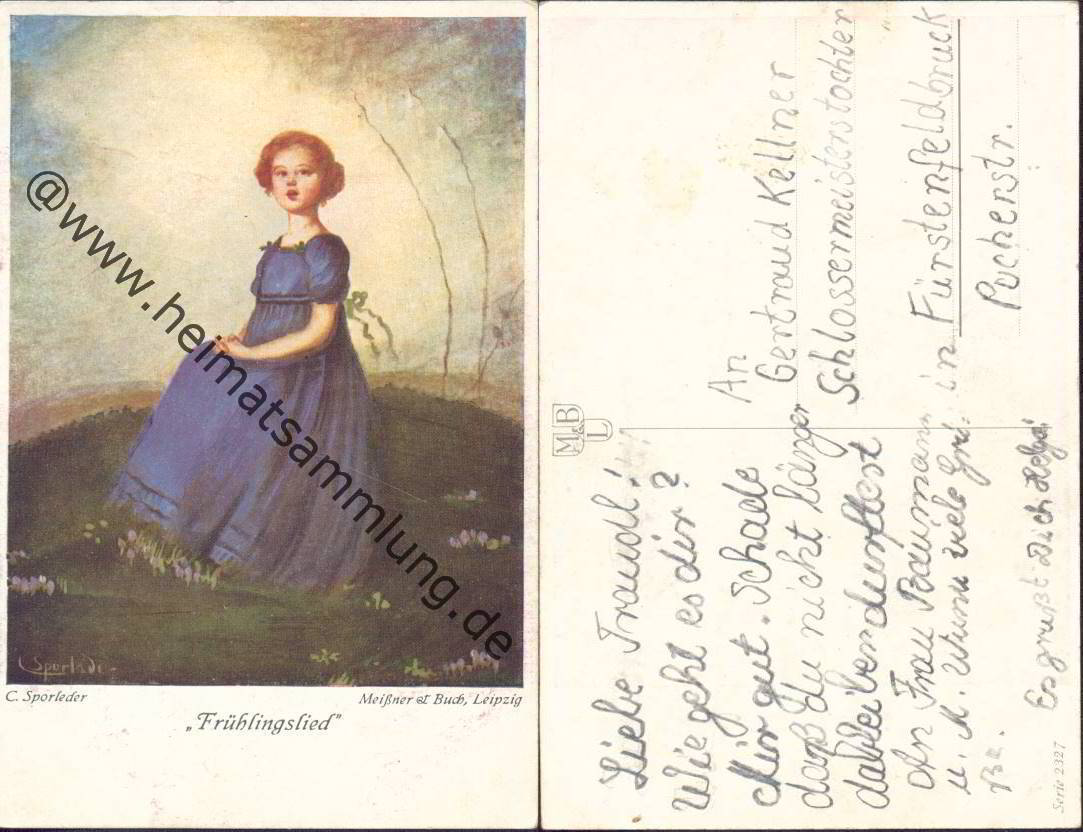 @www.heimatsammlung.de
C. Sporleder
C. Sporleder
Meißner & Buch, Leipzig
„Frühlingslied"
Liebe Traudl!
Wie geht es dir?
Mir gut. Schade
daß du nicht länger
dableiben durftest
An Frau Baumann
u. M. viele
Es grüßt Dich Helga!
M&B
L
An
Gertraud Kellner
Schlossermeisterstochter
in Fürstenfeldbruck
Pucherstr.
Serie 2327